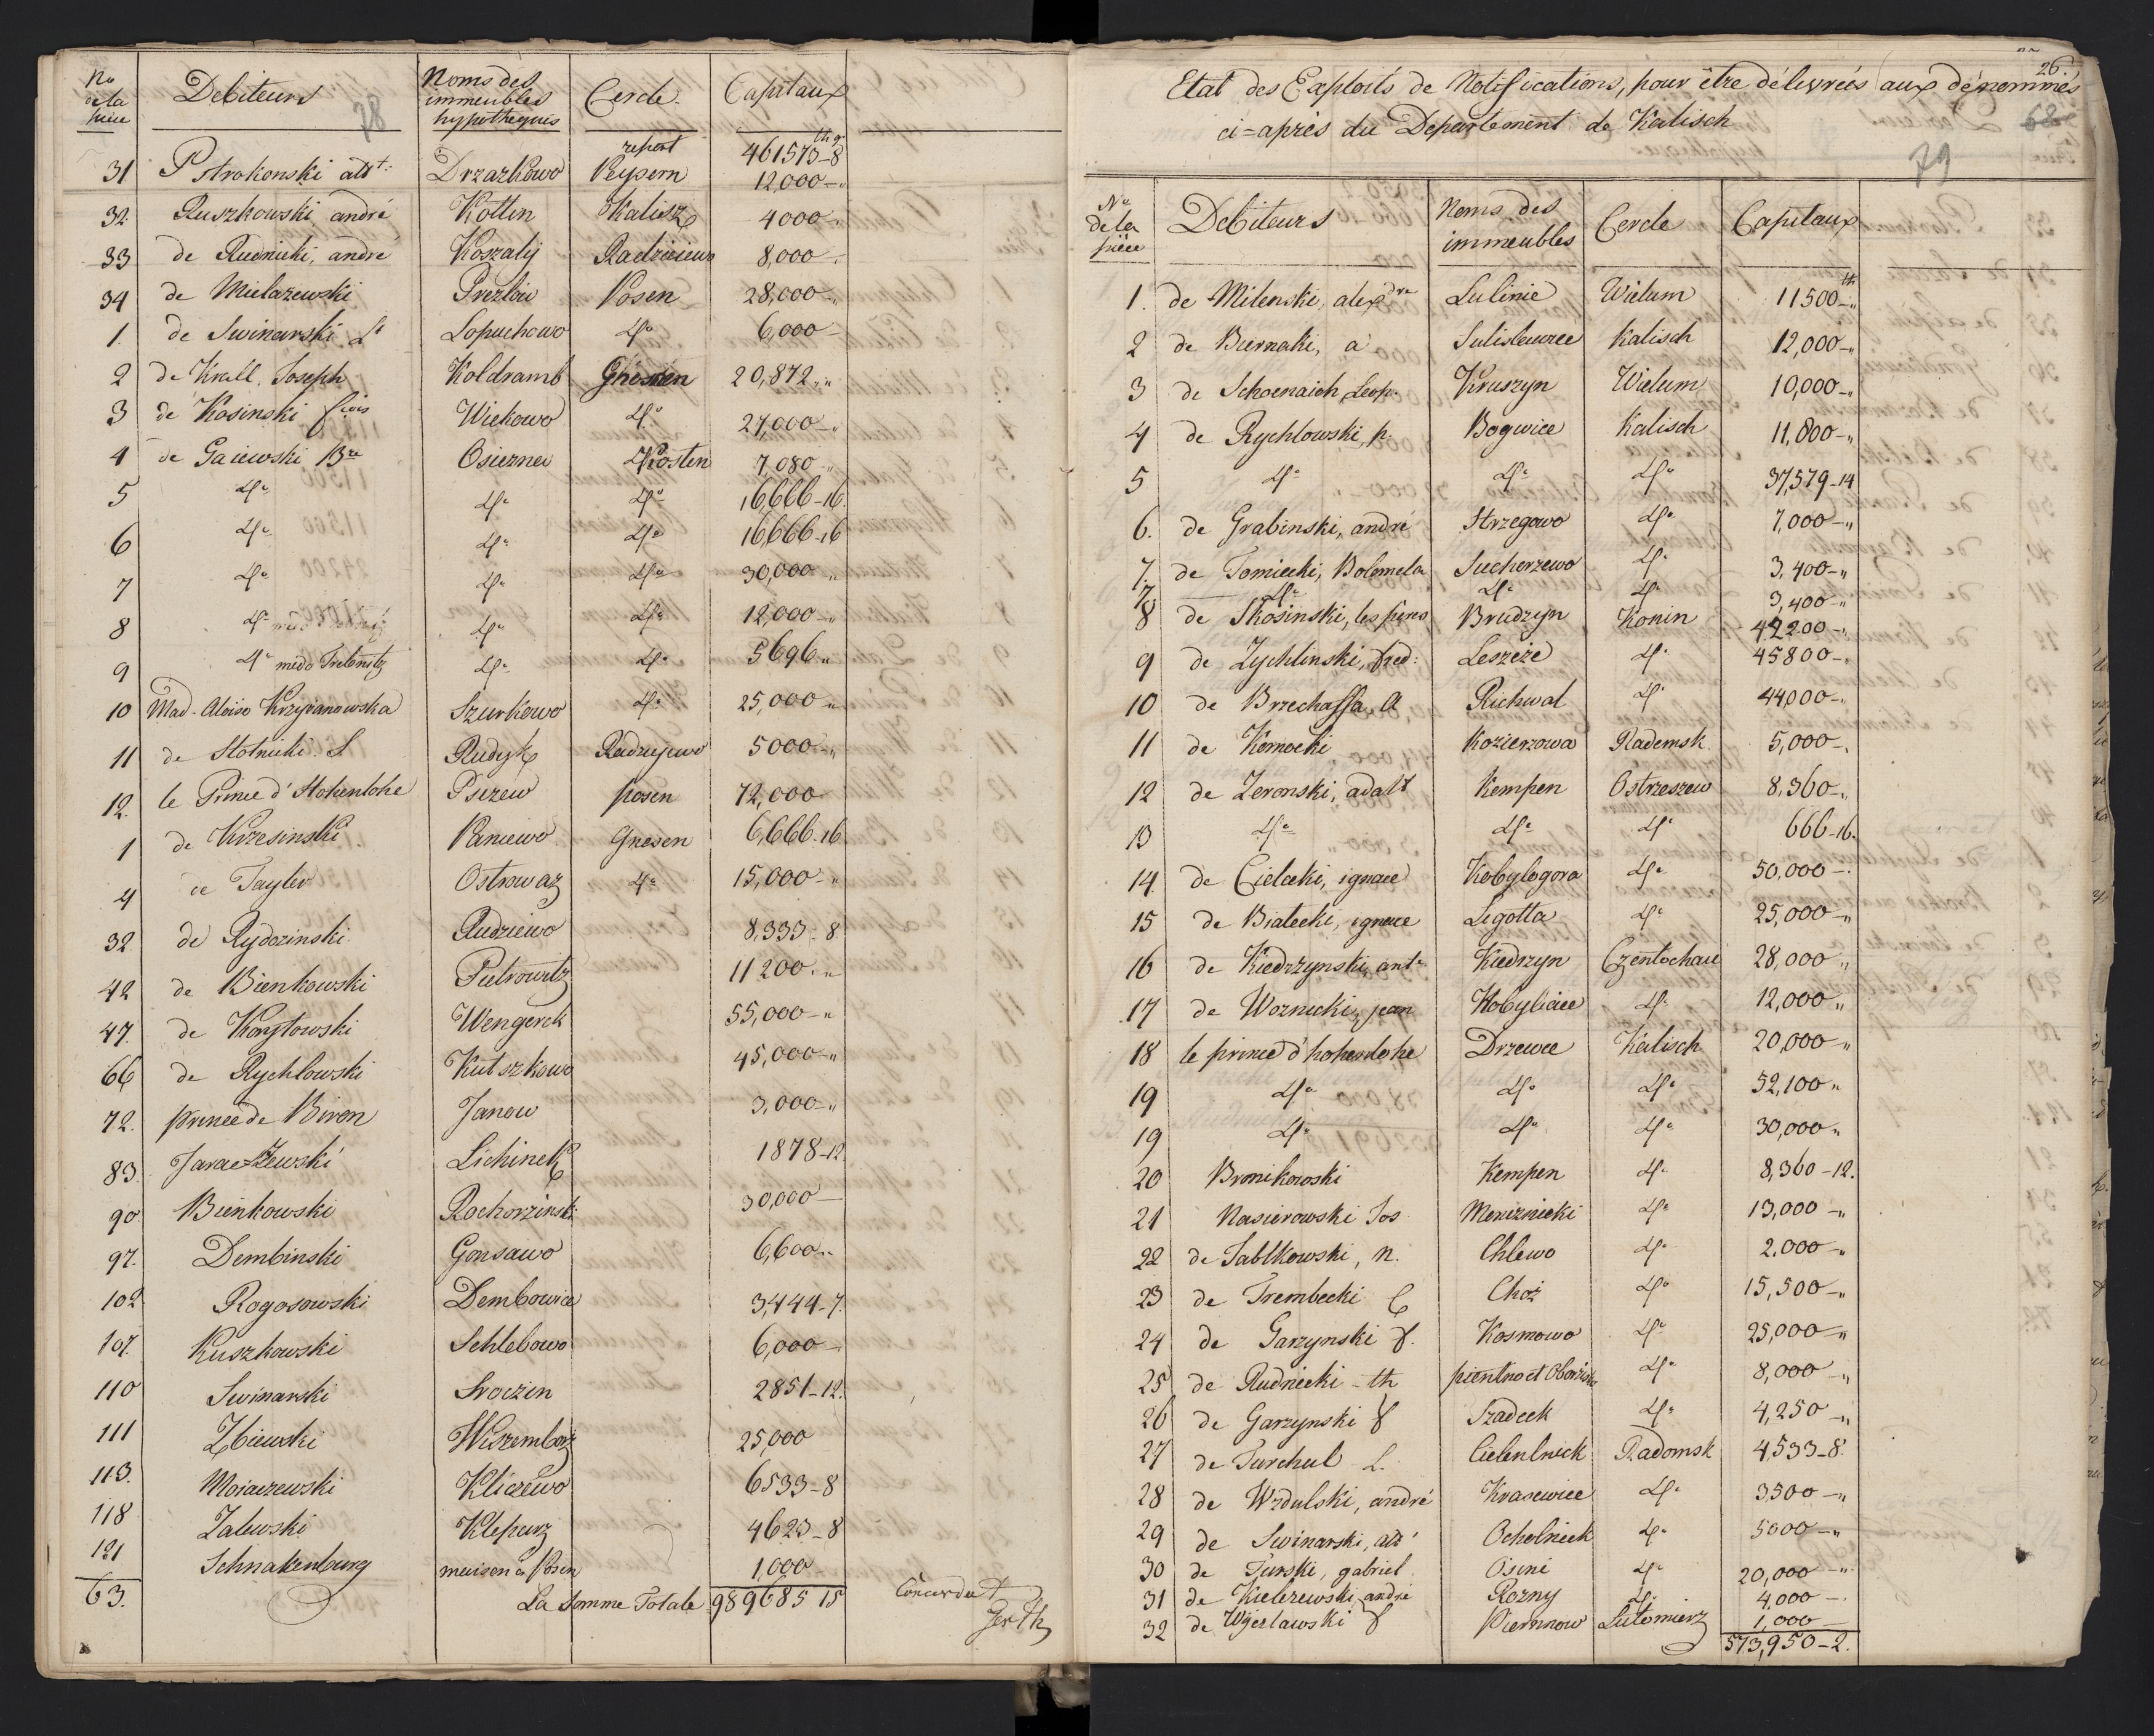 No de la pièce Debiteurs Noms des immeubles hypotheques Cercle Capitaux
28
report 461573-8
31 Pstrokonski adt. Drzazkowo Peysern 12,000-"
32 Ruszkowski andré Kotlin Kalisz 4000-"
33 de Rudnicki, andré Koszaly Radzieiew 8,000-
34 de Mielazewski Prezlaw Posen 28,000-"
1. de Swinarski Lopuchowo do 6,000-
2 de Krall, Joseph Koldramb Gnesen 20,872"
3 de Kosinski fçois Wiekowo do 27,000-"
4 de Gaiewski Osieznev Kosten 7,080-"
5 do do do 16,666-16.
6 do do do 16,666-16
7 do do do 30,000-"
8 do do do 12,000-"
9 do mdo Trebnitz do do 5696"
10 Mad. Aloise Krzyzanowska Szurkowo do 25,000-"
11 de Slotnicki. S Rudyk Radzyewo 5000-"
12. le Prince d'Hohenlohe Pszew posen 72,000
1 de Krzesinski Paniewo Gnesen 6,666-16
4 de Tayler Ostrowaz do 15,000-"
32 de Rydozinski Rudziewo 8,333-8
42 de Bienkowski Pietrowitz 11200-"
47. de Korytowski Wengerck 55,000-"
66 de Rychlowski Kutszkowo 45,000-"
72. prince de Biron Janow 3,000-"
83. Jaraczewski Lichinek 1878-12.
90 Bienkowski Rochorzinski 30,000-
97. Dembinski Gonsawo 6,600"
102 Rogosowski Dembowice 3,444-7.
107. Kuszkowski Schlebowo 6,000-
110 Swinarski Sroizin 2851-12.
111 Zbiewski Wiszemborz 25,000
113. Moiaczewski Kliczewo 6533-8
118 Zalewski Kleparz 4623-8
121 Schnakenburg maison à Posen 1,000-
63. La Somme Totale 989685 15 Concordat
26.
Etat des Exploits de Notifications, pour être délivrées aux dénommés
ci=après du Departement de Kalisch
68
29
No de la pièce Debiteurs Noms des immeubles Cercle Capitaux
1. de Milenski, alexdre Lulinie Wielum 11500-"
2 de Biernaki, a Sulislawice Kalisch 12,000-"
3 de Schoenaich, Leop. Kruszyn Wielum 10,000-"
4 de Rychlowski, p. Bogwice Kalisch 11,800-"
5 do do do 37,579-14
6. de Grabinski, andré Strzegowo do 7,000-"
7. de Tomiecki, Bolomela Sucherzewo do 3,400-"
7. do do do 3,400-"
8 de Skosinski, les frères Brudzyn Konin 42200-"
9 de Zychlinski, fred: Leszeze do 45800-"
10 de Brzechaffa A Richwal do 44,000-"
11 de Komocki Kozierzowa Rademsk 5,000-"
12 de Zeronski, adalt Kempen Ostrzeszew 8,360-"
13 do do do 666-16.
14 de Cielecki, ignace Kobylogora do 50,000-"
15 de Bialecki, ignace Ligotta do 25,000-"
16 de Kiedrzynski, ant. Kiedrzyn Czentochau 28,000"
17 de Woznicki, jean Kobylicice do 12,000"
18 le prince d'hohenlohe Drzewce Kalisch 20,000-"
19 do do do 52,100"
19 do do do 30,000"
20 Bronikowski Kempen do 8,360-12.
21 Nasierowski Jos Meniznicki do 13,000-"
22 de Jablkowski, n. Chlewo do 2,000-"
23 de Trembecki C Choż do 15,500-"
24 de Garzynski f. Kosmowo do 25,000-"
25 de Rudnicki - th pientno et do 8,000-"
26 de Garzynski f Szadeck do 4,250-"
27 de Turchul L. Cielenlnick Radomsk 4,533-8.
28 de Wzdulski, andré Krasewice do 3,500-"
29 de Swinarski, adt Ocholnieck do 5000-"
30 de Turski, gabriel Osini do 20,000-"
31 de Kielczewski, andré Rozny do 4,000-
32 de Wgierlawski f Piernnow Lutomierz 1,000-
573,950-2.